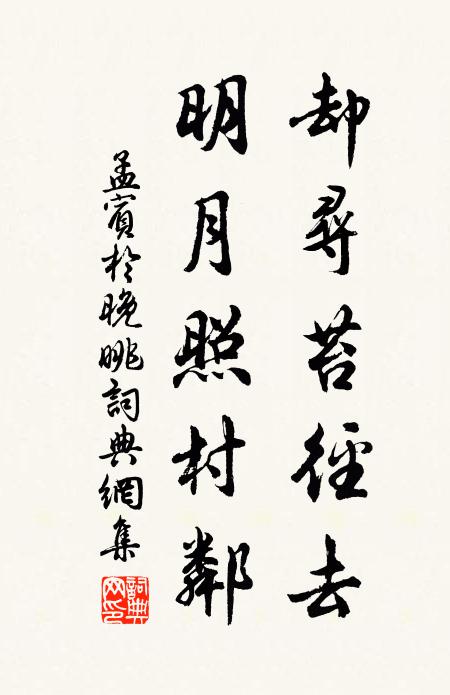 却尋苔徑去
明月照村鄰
孟賓於晚眺詞典網集
詞典網印